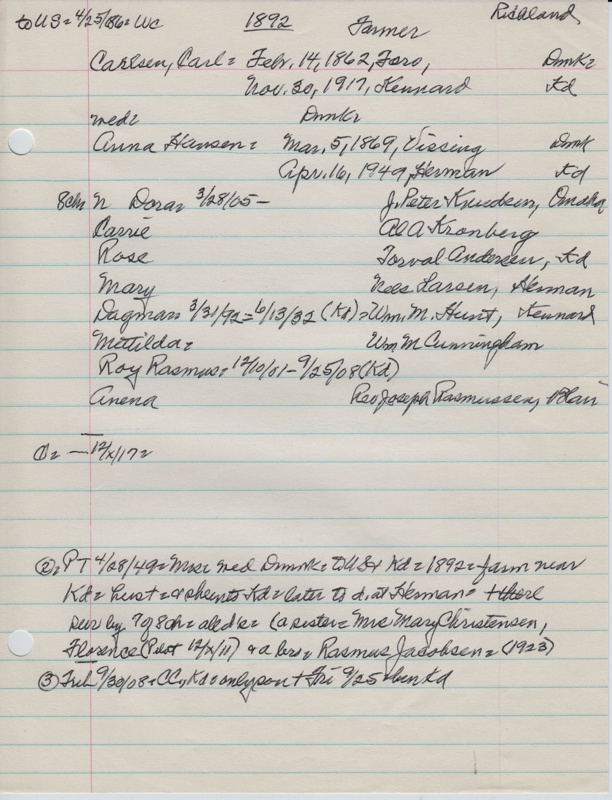 to US = 4/25/86 = WC 1892 Farmer Richland
Carlsen, Carl = Feb. 14, 1862, Faro, Dnmk =
Nov. 30, 1917, Kennard Kd
med = Dnmk =
Anna Hansen = Mar. 5, 1869, Vissing Dnmk
Apr. 16, 1949, Herman Kd
8ch N Dora = 3/28/05 - J. Peter Knudsen, Omaha
Carrie Al A Kronberg
Rose Torval Andersen, Kd
Mary Nels Larsen, Herman
Dagmar = 3/31/92 = 6/13/32 (Kd) = Wm. M. Hunt, Kennard
Matilda = Wm. M Cunningham
Roy Rasmus = 12/10/01 - 9/25/08 (Kd)
Anena Leo Joseph Rasmussen, Blair
O = — 12/x/17 =
② = PT 4/28/49 = Mose med Dnmk = to US + Kd = 1892 = farm near
Kd = hust = a shents Kd = later to d. at Herman = there
sur by 7 of 8ch = all d's = (a sister = Mrs Mary Christensen,
Florence (Pilot 12/x/11) + a bro = Rasmus Jacobsen = (1923)
③ Trib 9/30/08 = CC, Kd = only son + Fri 9/25 = bur Kd